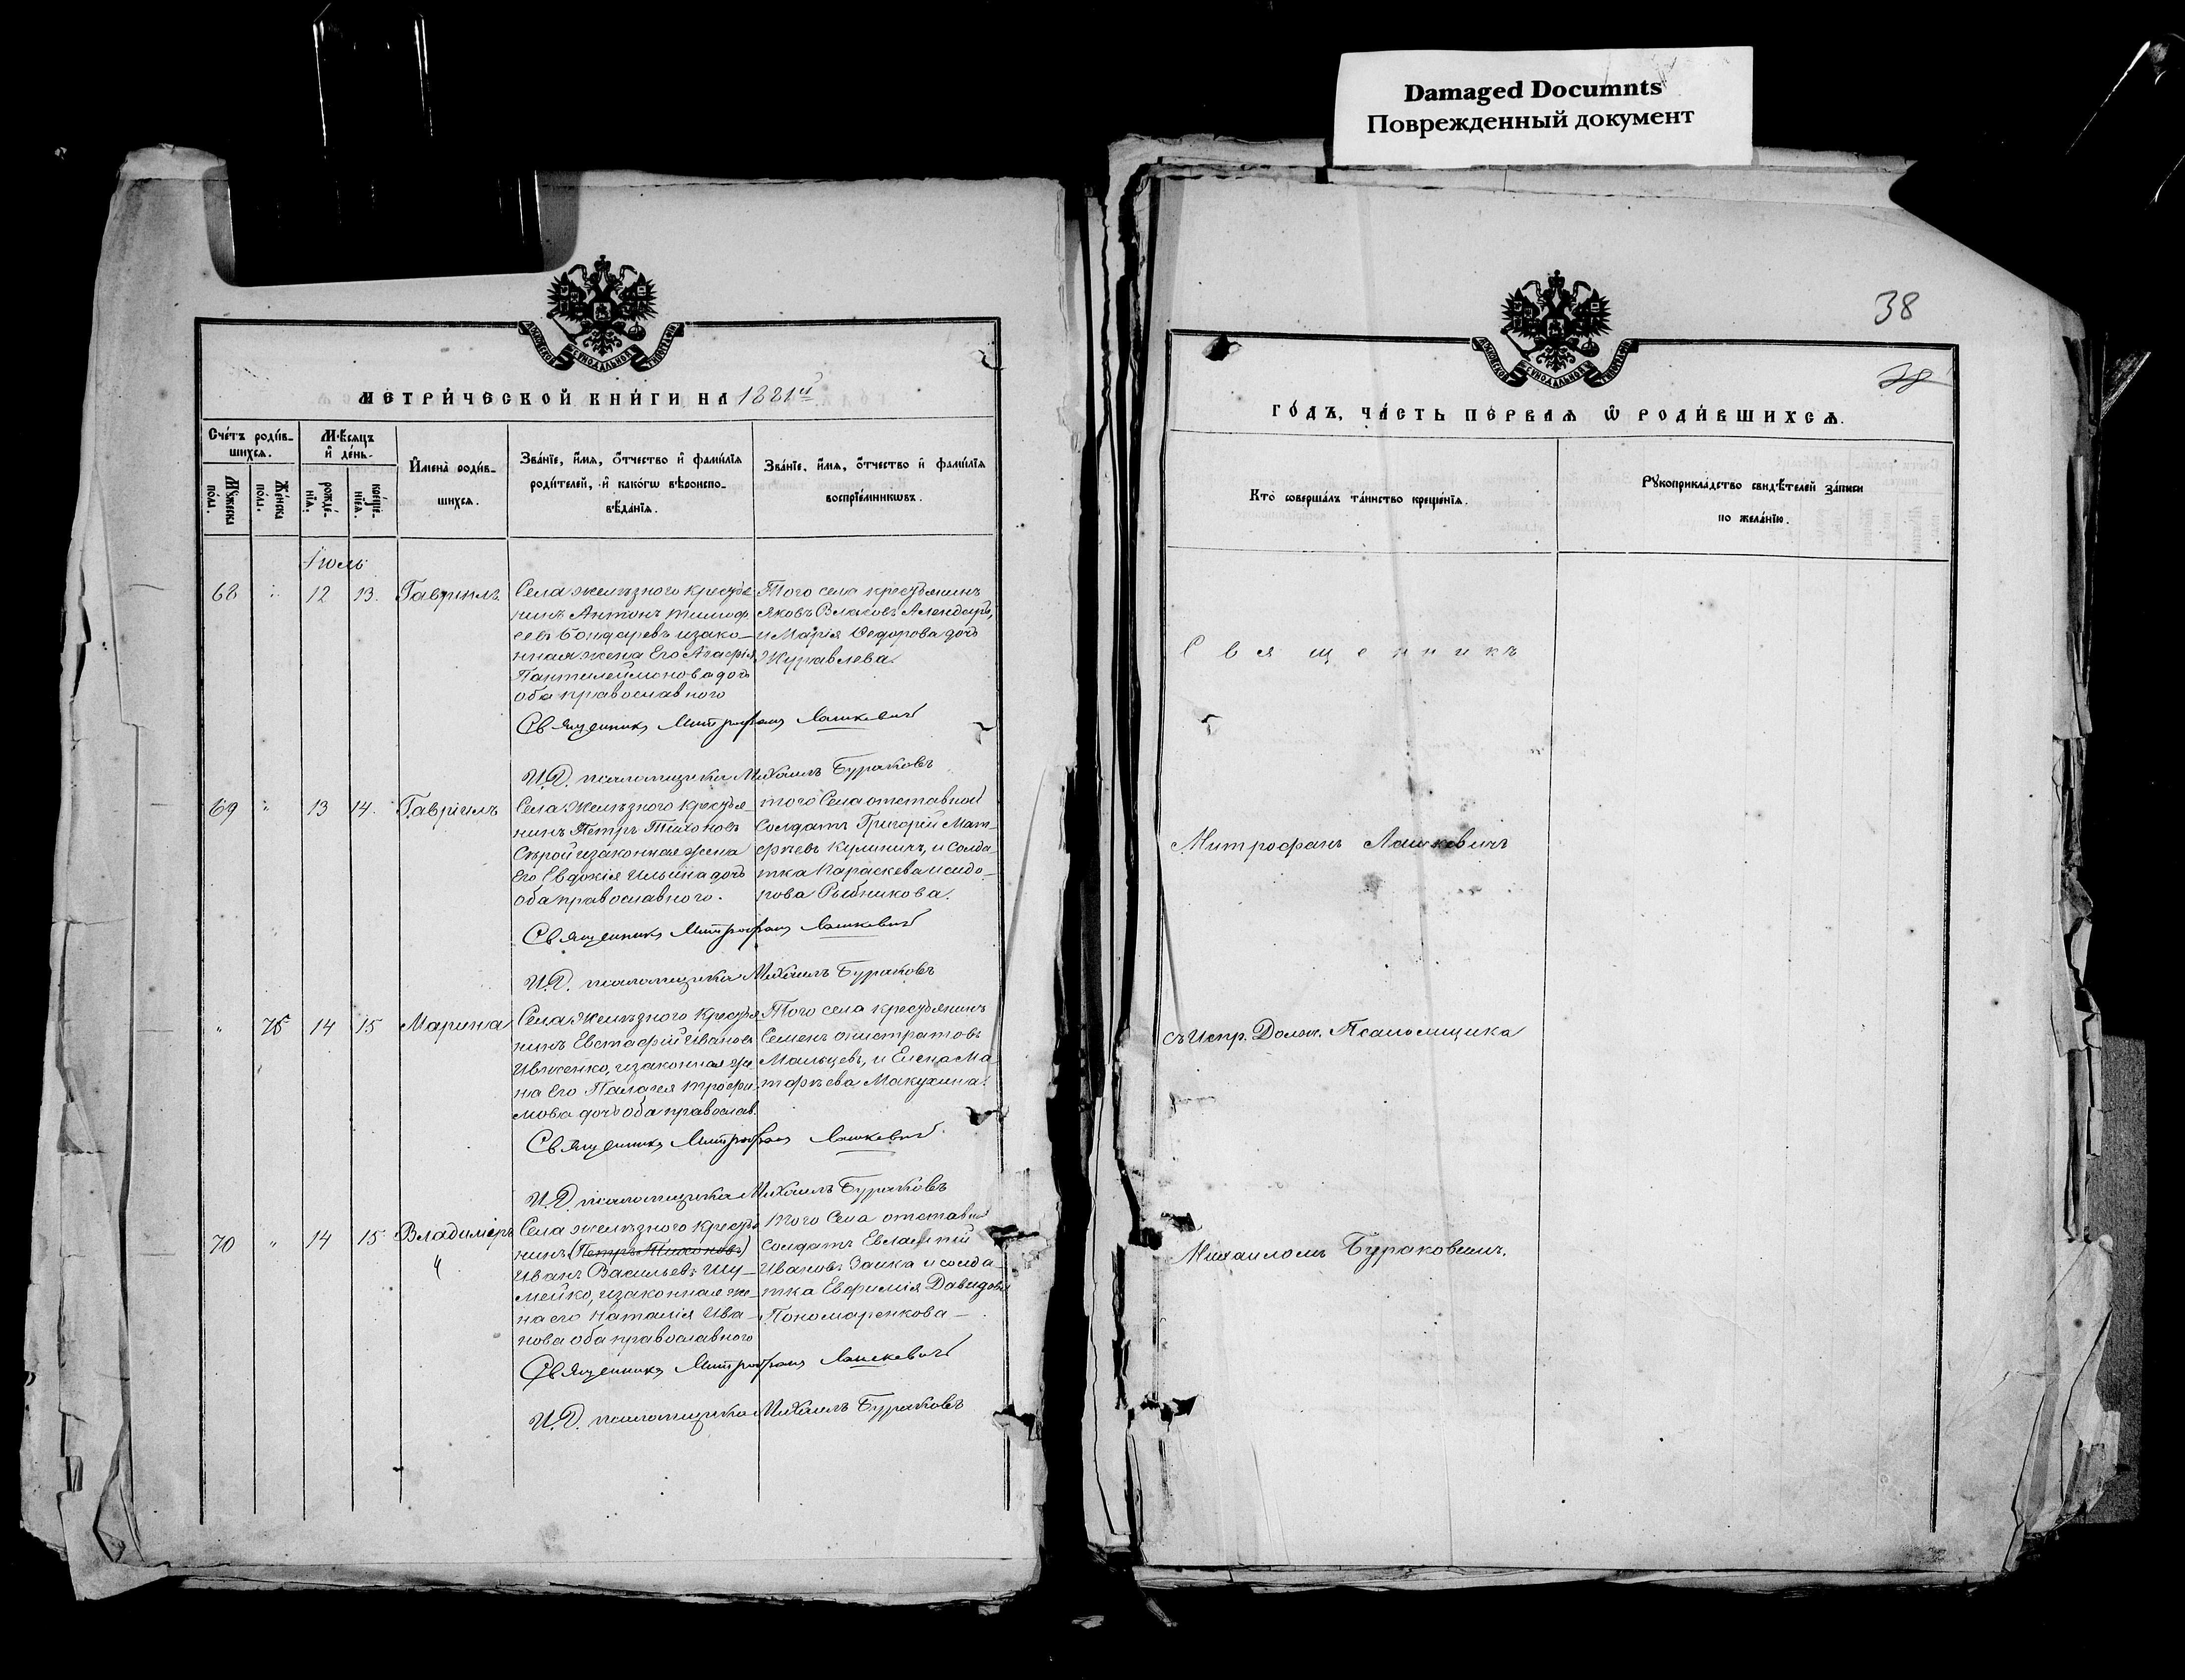 Damaged Documnts
Поврежденный документ
МОСКОВСКОЙ СѴНОДАЛЬНОЙ ТИПОГРАФІИ
МЕТРИ́ЧЕСКОЙ КНИ́ГИ НА 1881й
Сче́тъ роди́в-
шихсѧ.
Мꙋжеска по́ла.
Же́нска по́ла.
Мѣ́сяцъ
и҆ де́нь.
рожде́-нїѧ.
креще́-нїѧ.
И҆мена̀ роди́в-
шихсѧ.
Зва́нїе, и҆́мѧ, ѻ҆́тчество и҆ фами́лїѧ
роди́телей, и҆ како́гѡ вѣроиспо-
вѣ́данїѧ.
Зва́нїе, и҆́мѧ, ѻ҆́тчество и҆ фами́лїѧ
воспрїе́мникѡвъ.
Іюль
68 " 12 13. Гавриилъ
Села желѣзного крестья
нинъ Антонъ Тимоф
еевъ Бондаревъ изако-
нная жена Его Агафія
Пантилеймонова дочь
оба православного
Того села крестьянинъ
Яковъ Власовъ
и Марія Ѳедорова дочь
Журавлева.
Священникъ Митрофанъ Лашкевичъ
И.Д. псаломщика Михаилъ Бураковъ
69 " 13 14. Гавріилъ
Села Желѣзного крестья-
нинъ Петръ Тихоновъ
Сѣрой изаконная жена
Его Евдокія Ильина дочь
оба православного.
того Села отставной
Солдатъ Григорій Мат-
фѣевъ Кулиничъ, и солда-
тка Параскева исидо-
рова Рыбникова.
Священникъ Митрофанъ Лашкевичъ
И.Д. псаломщика Михаилъ Бураковъ
" 14 15 Марина
Села Желѣзного крестья
нинъ Евстафій Ивановъ
Ивженко, изаконная же
на Его Палагея трофи-
мова дочь оба православ.
Того села крестьянинъ
Семенъ
Мальцевъ, и Елена Ма
тфѣева Макухина.
Священникъ Митрофанъ Лашкевичъ
И.Д. псаломщика Михаилъ Бураковъ
70 " 14 15 Владиміръ
"
Села желѣзного крестья
нинъ (Петръ Тихоновъ)
Иванъ Васильевъ Шу-
мейко, изаконная же-
на его Наталія Ива-
нова оба православного
того Села отставной
солдатъ Евлампій
Ивановъ Заика и солда-
тка Евфимія Давидова
Пономаренкова
Священникъ Митрофанъ Лашкевичъ
И.Д. псаломщика Михаилъ Бураковъ
38
38
МОСКОВСКОЙ СѴНОДАЛЬНОЙ ТИПОГРАФІИ
ГО́ДЪ, ЧА́СТЬ ПЕ́РВАѦ Ѡ҆ РОДИ́ВШИХСѦ.
Кто̀ соверша́лъ та́инство креще́нїѧ.
Рꙋкоприкла́дство свидѣ́телей за́писи
по жела́нїю.
Священникъ
Митрофанъ Лашкевичъ
съ Испр. Долж. Псаломщика
Михаиломъ Бураковымъ.